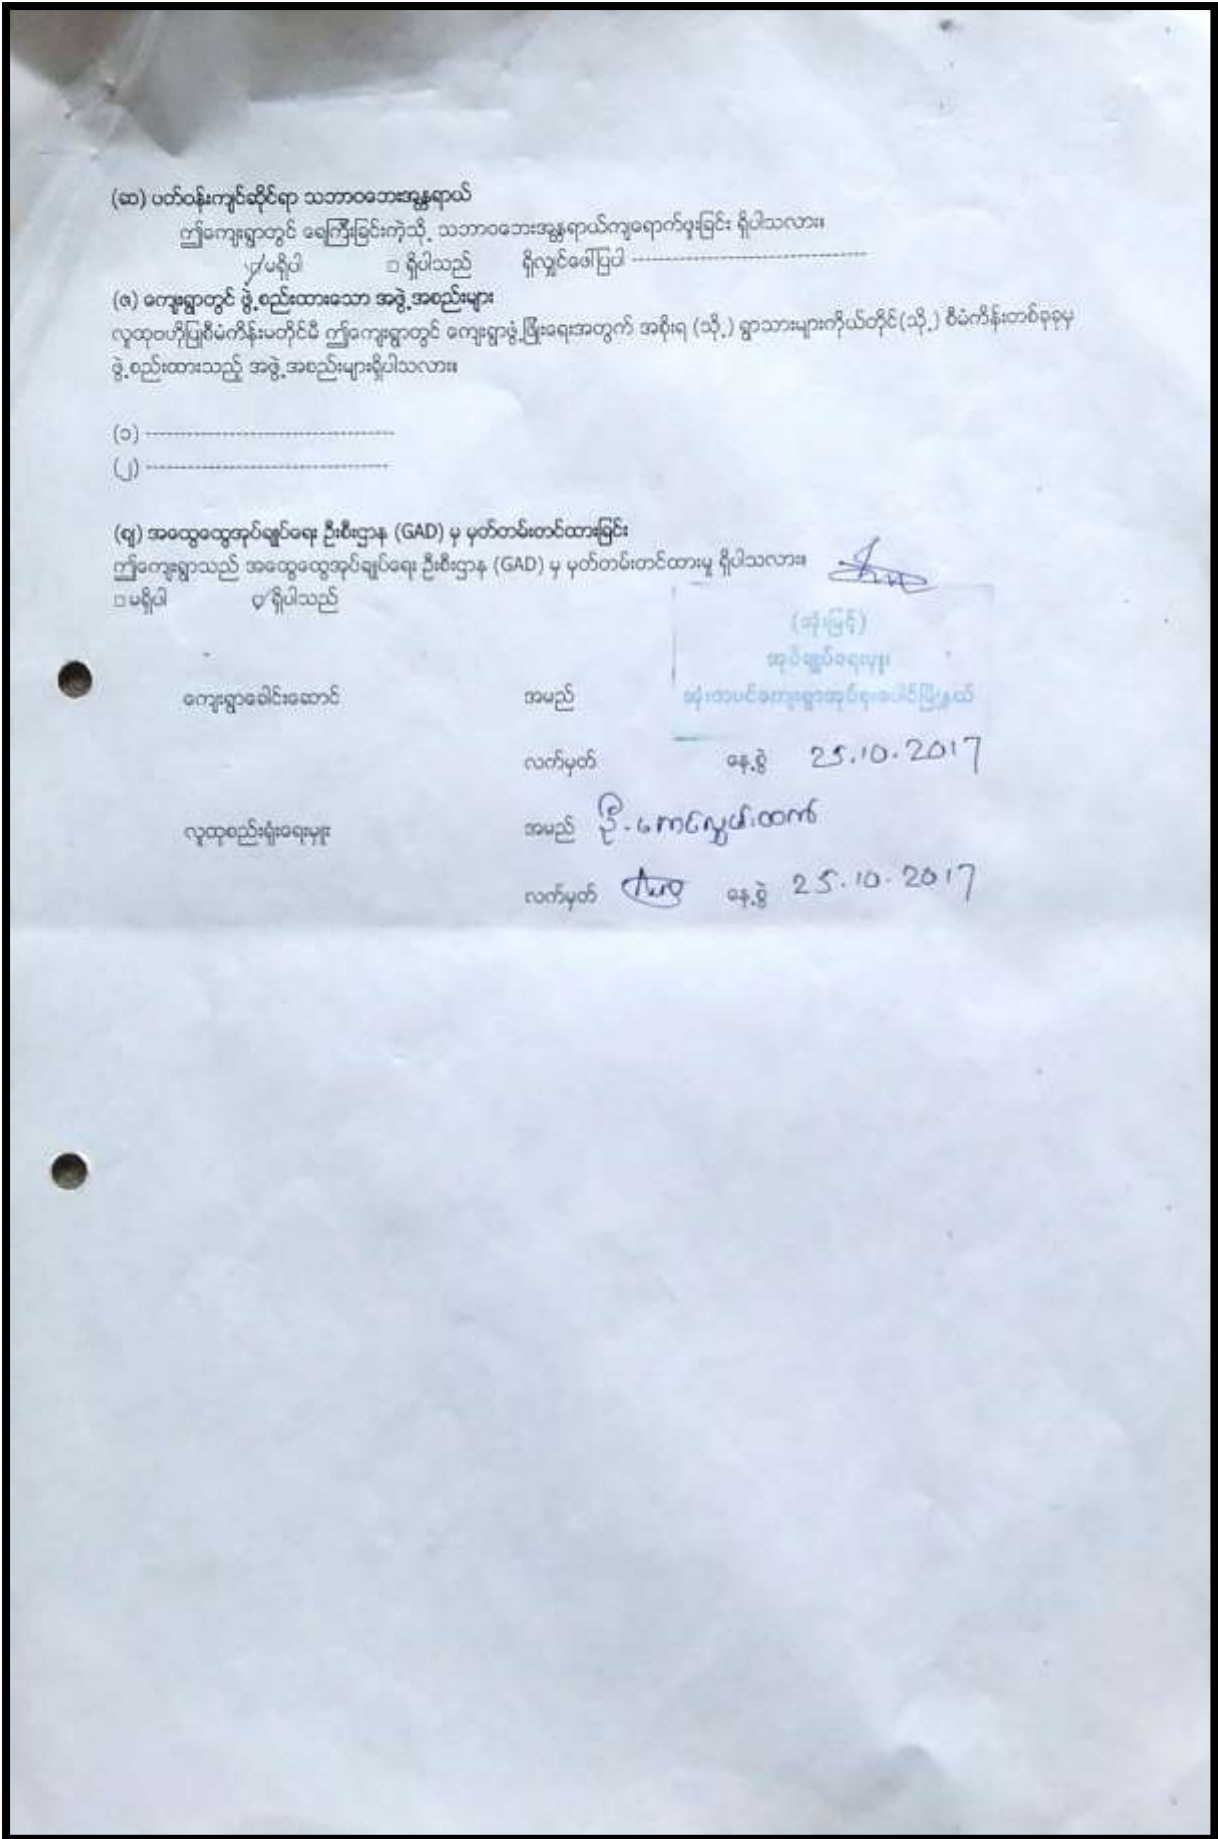 (ဆ) ပတ်ဝန်းကျင်ဆိုင်ရာ သဘာဝဘေးအန္တရာယ်
ဤကျေးရွာတွင် ရေကြီးခြင်းကဲ့သို့ သဘာဝဘေးအန္တရာယ်ကျရောက်ဖူးခြင်း ရှိပါသလား။
☑ မရှိပါ □ ရှိပါသည် ရှိလျှင်ဖေါ်ပြပါ ---------------------------------
(ဇ) ကျေးရွာတွင် ဖွဲ့စည်းထားသော အဖွဲ့အစည်းများ
လူထုဗဟိုပြုစီမံကိန်းမတိုင်မီ ဤကျေးရွာတွင် ကျေးရွာဖွံ့ဖြိုးရေးအတွက် အစိုးရ (သို့) ရွာသားများကိုယ်တိုင်(သို့) စီမံကိန်းတစ်ခုခုမှ
ဖွဲ့စည်းထားသည့် အဖွဲ့အစည်းများရှိပါသလား။
(၁) -----------------------------------
(၂) -----------------------------------
(ဈ) အထွေထွေအုပ်ချုပ်ရေး ဦးစီးဌာန (GAD) မှ မှတ်တမ်းတင်ထားခြင်း
ဤကျေးရွာသည် အထွေထွေအုပ်ချုပ်ရေး ဦးစီးဌာန (GAD) မှ မှတ်တမ်းတင်ထားမှု ရှိပါသလား။
□ မရှိပါ ☑ ရှိပါသည်
အုပ်ချုပ်ရေးမှူး
ကျေးရွာခေါင်းဆောင် အမည်
လက်မှတ် နေ့စွဲ 25.10.2017
လူထုစည်းရုံးရေးမှူး အမည် ဦးကောင်းထက်
လက်မှတ် နေ့စွဲ 25.10.2017